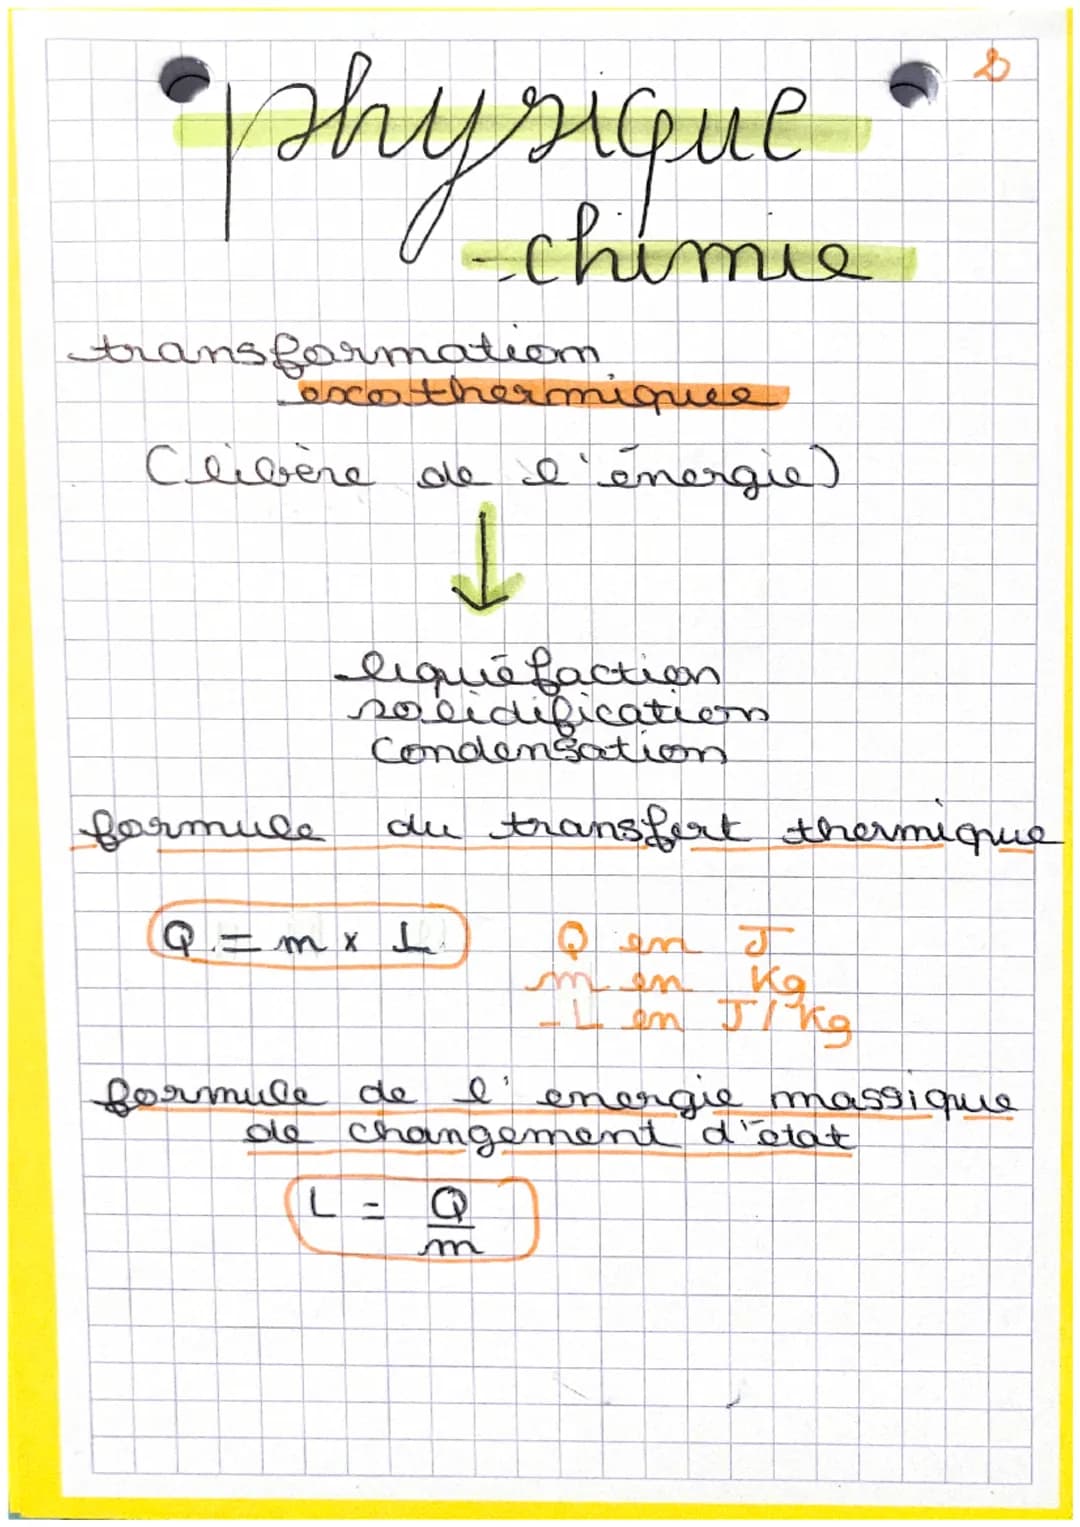 physique
-chimie
transformation
exothermique
(libère de l'énergie)
↓
liquéfaction
solidification
condensation
formule du transfert thermique
Q = m x L
Q en J
m en Kg
L en J/Kg
formule de l'energie massique
de changement d'état
L = Q/m